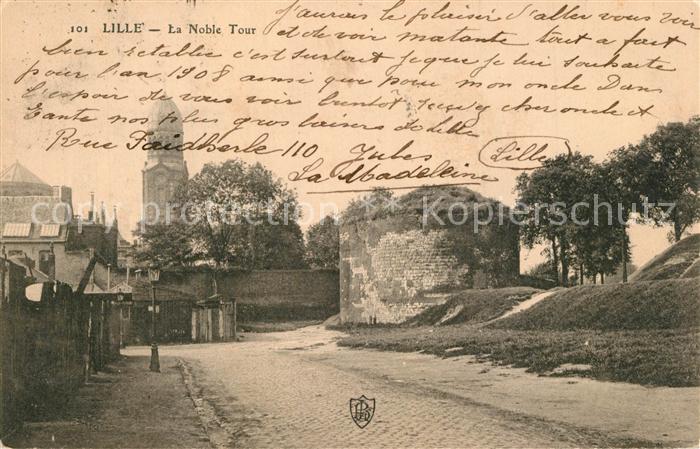 101 LILLE — La Noble Tour
J'aurais le plaisir d'aller vous voir
et de voir matante tout a fait
bien rétablie c'est surtout ce que je lui souhaite
pour l'an 1908 ainsi que pour mon oncle Dans
l'espoir de vous voir bientôt recevez cher oncle et
Tante nos plus gros baisers de Lille
Rue Faidherbe 110 Jules Lille
La Madeleine
copyright picturesscherer